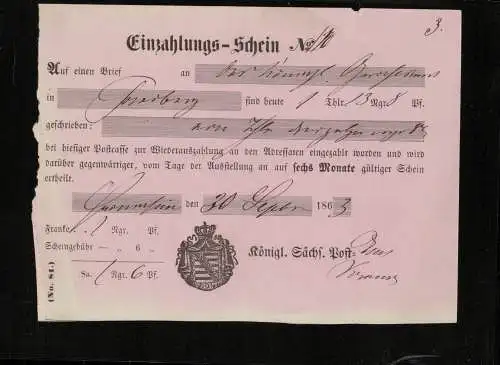 3.
Einzahlungs-Schein No.
Auf einen Brief an das Königl. Gerichtsamt
in sind heute 1 Thlr. 13 Ngr. 8 Pf.
geschrieben: ein Thlr. dreizehn ngr
bei hiesiger Postcasse zur Wiederauszahlung an den Adressaten eingezahlt worden und wird
darüber gegenwärtiger, vom Tage der Ausstellung an auf sechs Monate gültiger Schein
ertheilt.
den 30 Septbr 1863
Franko 1 Ngr. Pf.
Scheingebühr — „ 6 „
Sa. 1 Ngr. 6 Pf.
Königl. Sächs. Post-
(No. 81.)